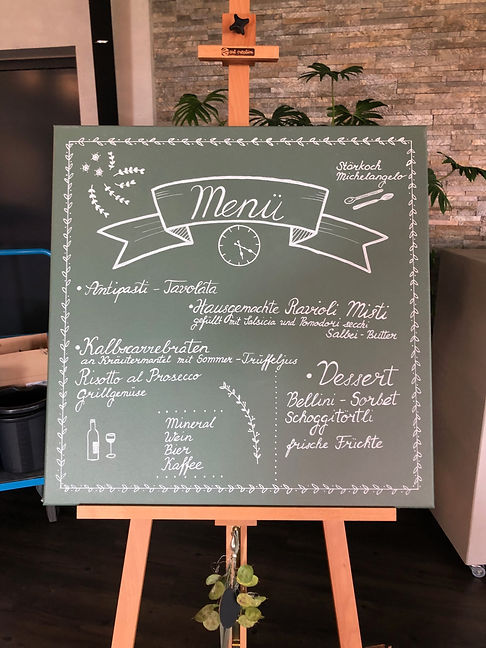 art creation
Stärkoch
Michelangelo
Menü
• Antipasti - Tavolata
• Hausgemachte Ravioli Misti
gefüllt mit Salsicia und Pomodori secchi
Salbei-Butter
• Kalbscarrebraten
an Kräutermantel mit Sommer-Trüffeljus
Risotto al Prosecco
Grillgemüse
• Dessert
Bellini - Sorbet
Schoggitörtli
frische Früchte
Mineral
Wein
Bier
Kaffee